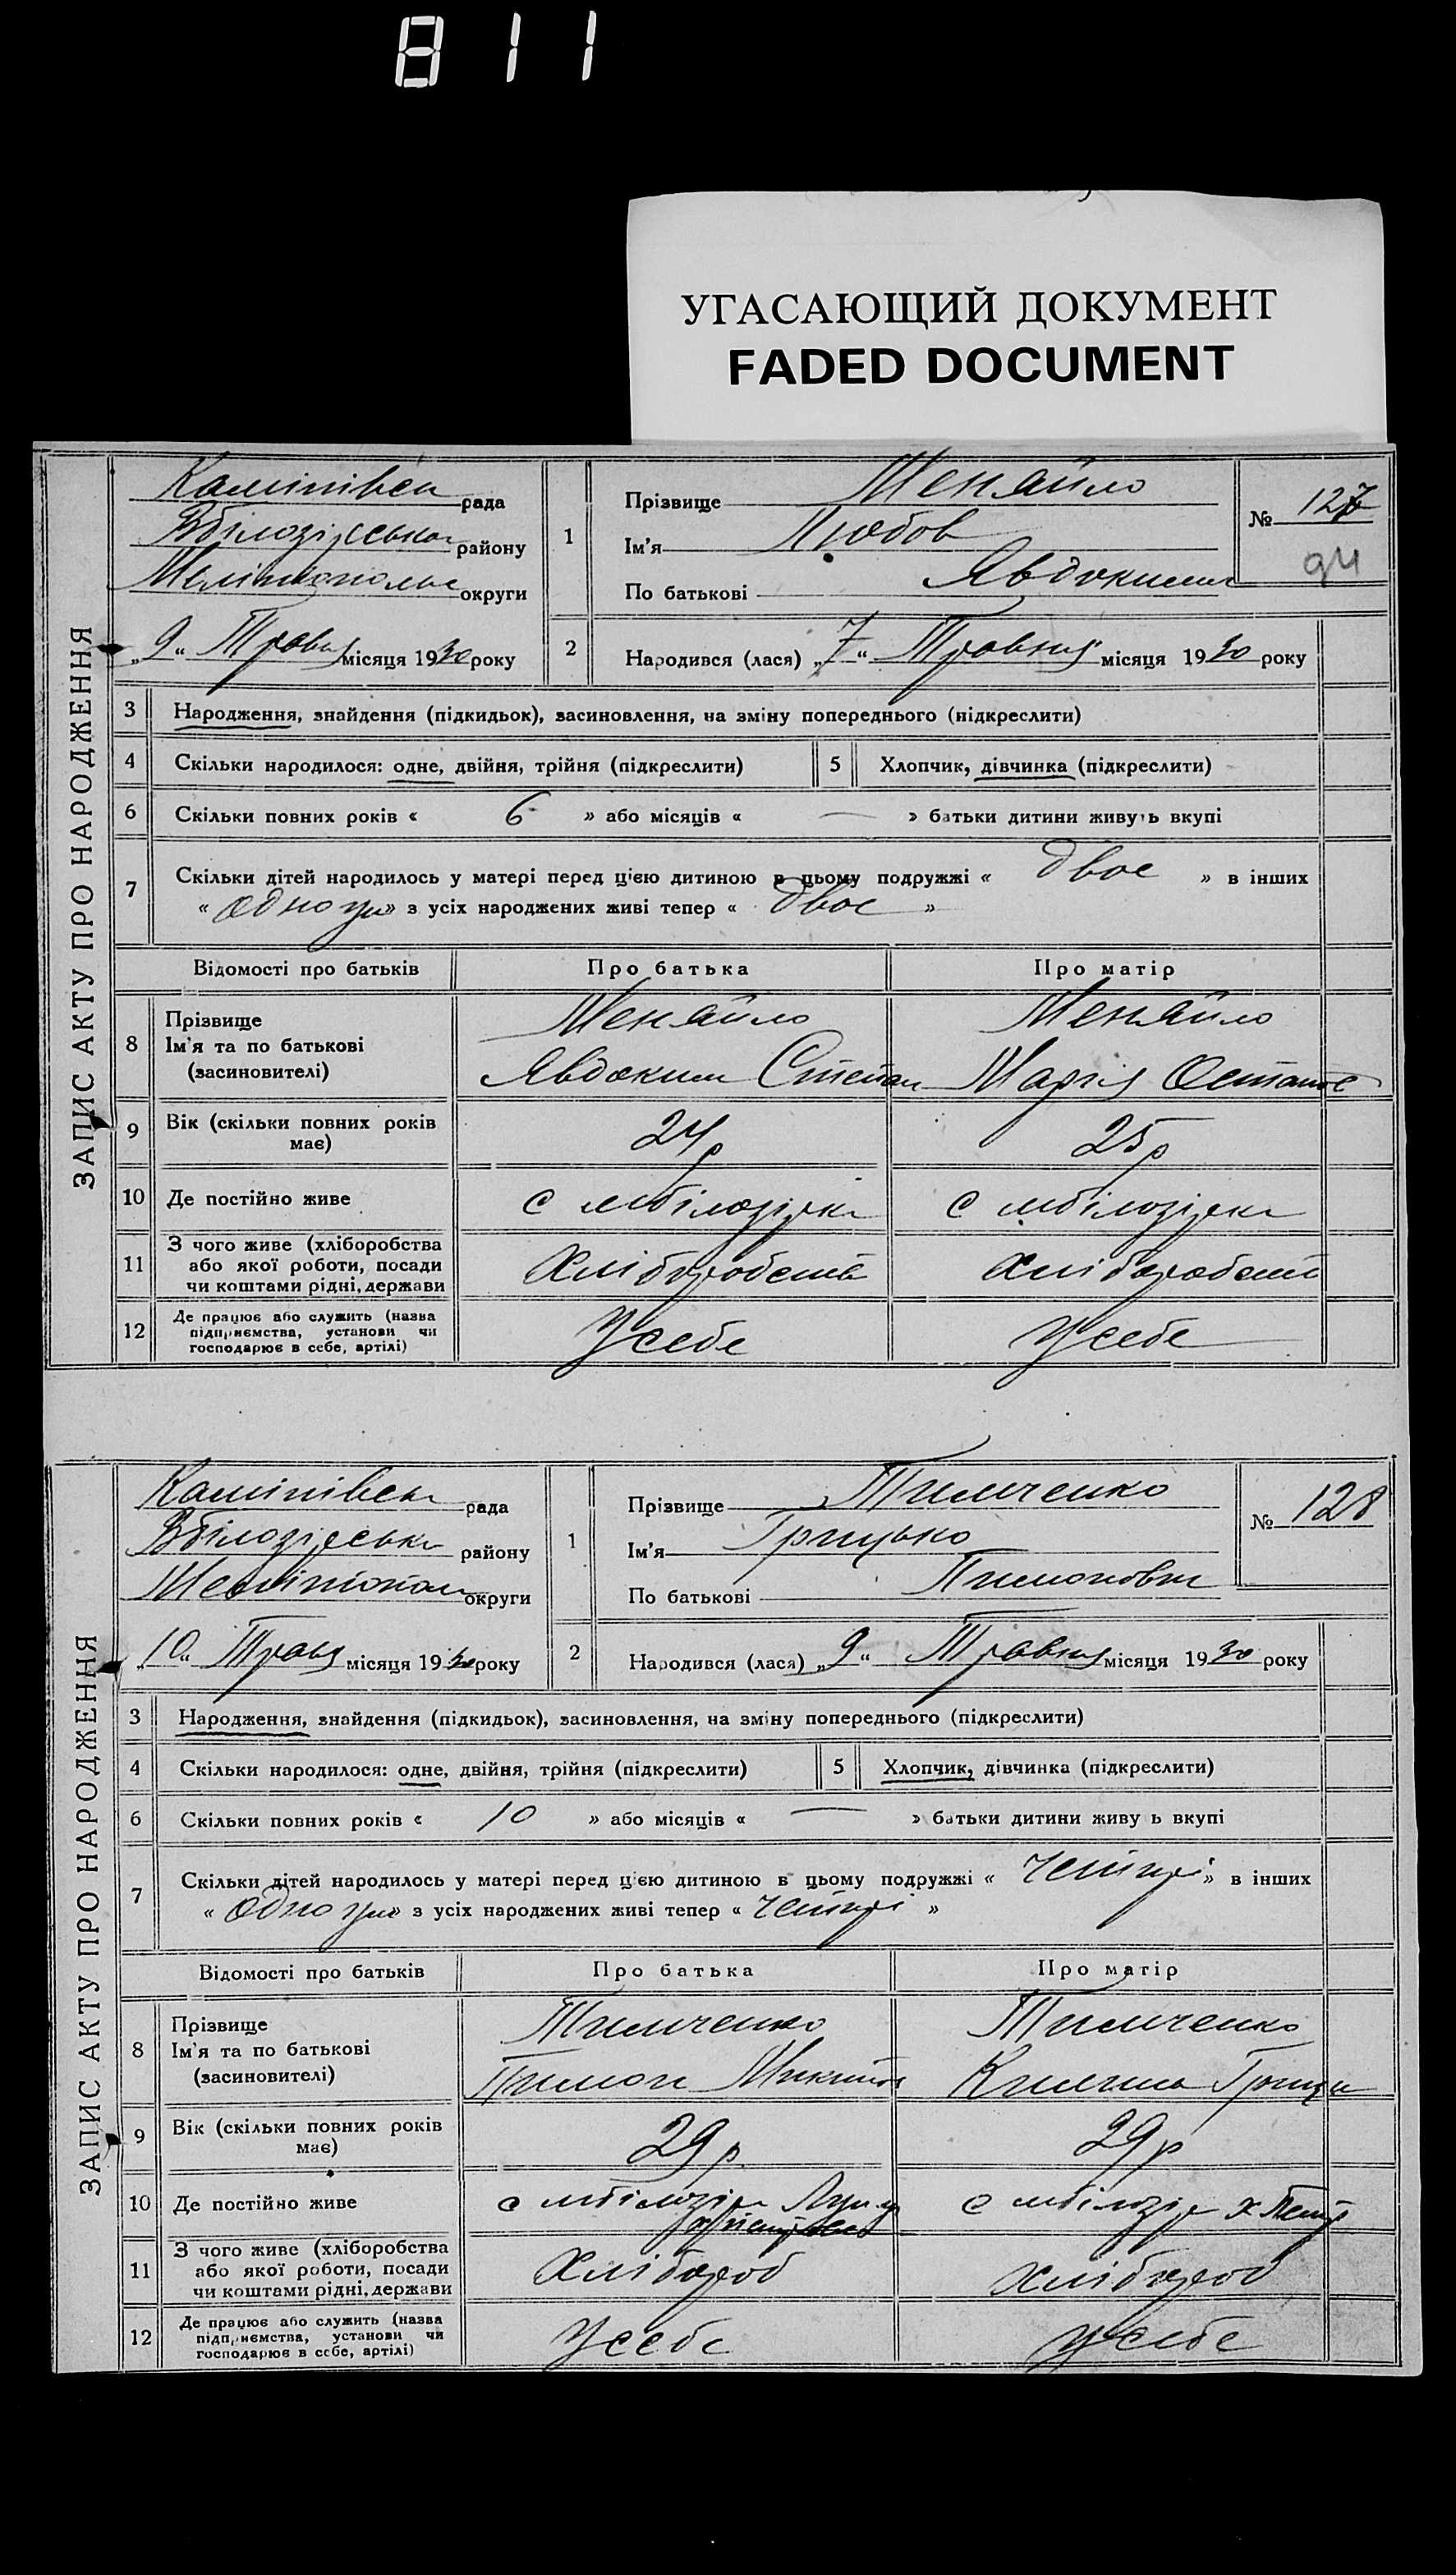 811
УГАСАЮЩИЙ ДОКУМЕНТ
FADED DOCUMENT
ЗАПИС АКТУ ПРО НАРОДЖЕННЯ
рада
району
округи
„9“ Травня місяця 1930 року
1
Прізвище Меняйло
Ім'я Любов
По батькові
№ 127
94
2
Народився (лася) „7“ Травня місяця 1930 року
3 Народження, знайдення (підкидьок), засиновлення, на зміну попереднього (підкреслити)
4 Скільки народилося: одне, двійня, трійня (підкреслити) 5 Хлопчик, дівчинка (підкреслити)
6 Скільки повних років « 6 » або місяців « — » батьки дитини живуть вкупі
7 Скільки дітей народилось у матері перед цією дитиною в цьому подружжі « двое » в інших
« » з усіх народжених живі тепер « двое »
Відомості про батьків Про батька Про матір
8 Прізвище Меняйло Меняйло
Ім'я та по батькові
(засиновителі) Явдоким Степан Марія
9 Вік (скільки повних років має) 24р 25р
10 Де постійно живе с с
11 З чого живе (хліборобства
або якої роботи, посади
чи коштами рідні, держави
12 Де працює або служить (назва
підприємства, установи чи
господарює в себе, артілі) У себе У себе
ЗАПИС АКТУ ПРО НАРОДЖЕННЯ
рада
району
округи
„10“ місяця 1930 року
1
Прізвище Тимченко
Ім'я Грицько
По батькові
№ 128
2
Народився (лася) „9“ Травня місяця 1930 року
3 Народження, знайдення (підкидьок), засиновлення, на зміну попереднього (підкреслити)
4 Скільки народилося: одне, двійня, трійня (підкреслити) 5 Хлопчик, дівчинка (підкреслити)
6 Скільки повних років « 10 » або місяців « — » батьки дитини живу ь вкупі
7 Скільки дітей народилось у матері перед цією дитиною в цьому подружжі « » в інших
« » з усіх народжених живі тепер « »
Відомості про батьків Про батька Про матір
8 Прізвище Тимченко Тимченко
Ім'я та по батькові
(засиновителі)
9 Вік (скільки повних років має) 29р. 29р
10 Де постійно живе с с
11 З чого живе (хліборобства
або якої роботи, посади
чи коштами рідні, держави Хлібороб Хлібороб
12 Де працює або служить (назва
підприємства, установи чи
господарює в себе, артілі) У себе У себе